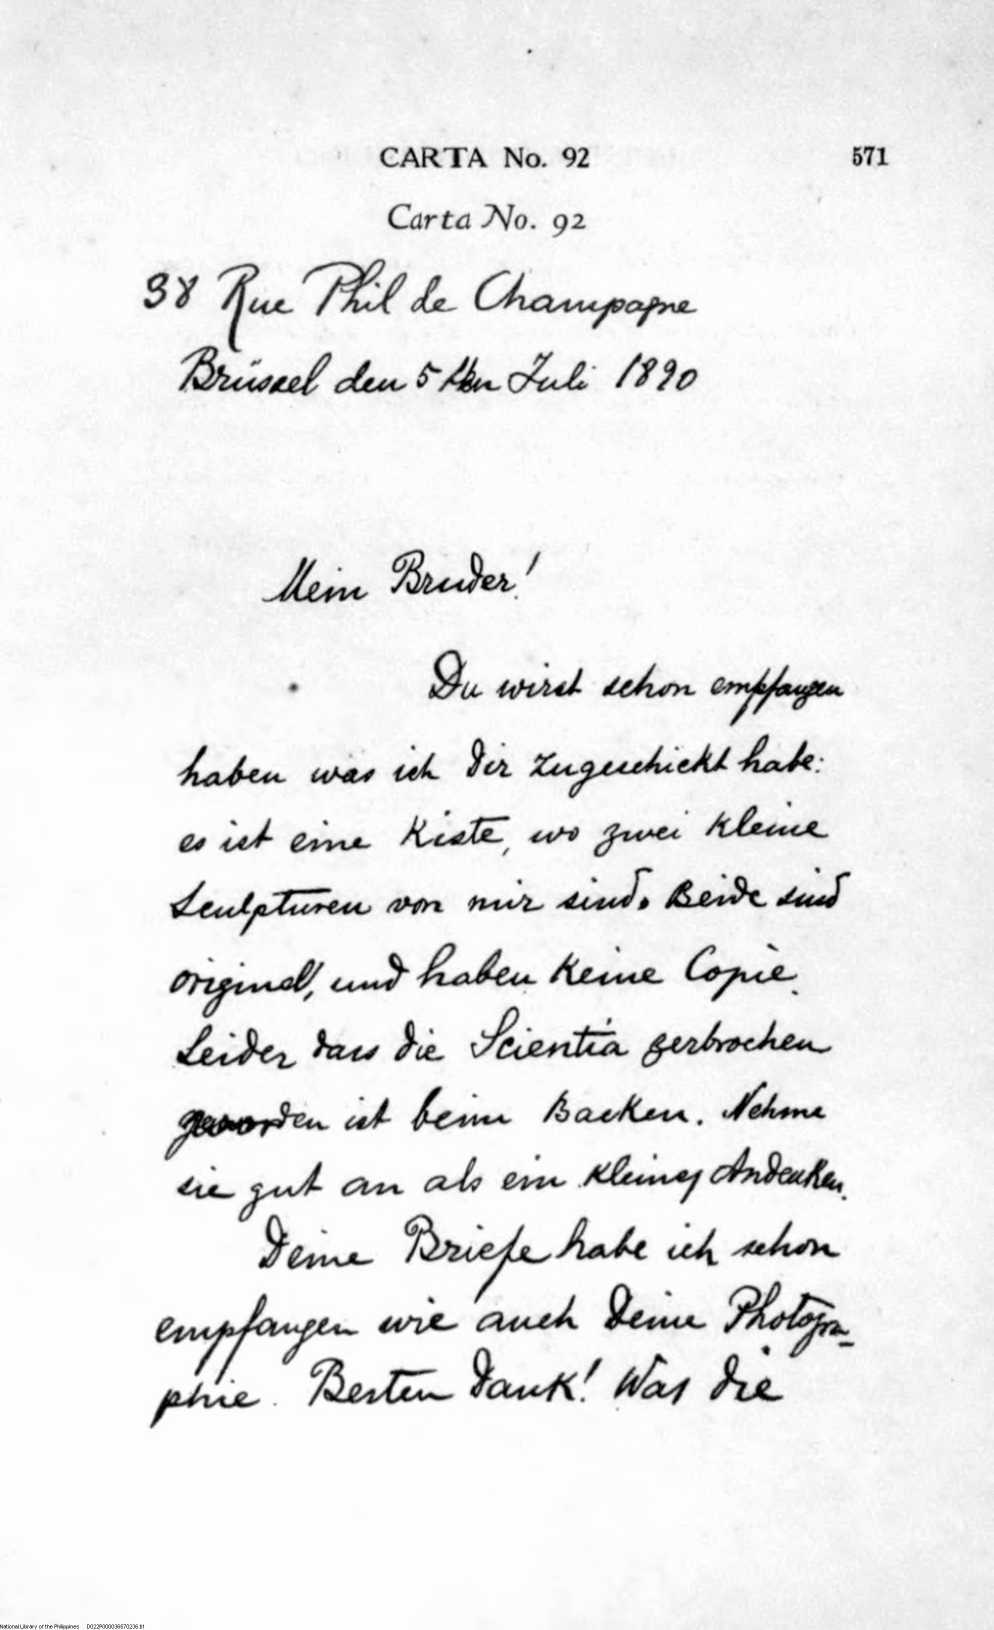 CARTA No. 92 571
Carta No. 92
38 Rue Phil de Champagne
Brüssel den 5 ten Juli 1890
Mein Bruder!
Du wirst schon empfangen
haben was ich Dir zugeschickt habe:
es ist eine Kiste, wo zwei kleine
Sculpturen von mir sind. Beide sind
original, und haben keine Copie.
Leider dass die Scientia zerbrochen
geworden ist beim Backen. Nehme
sie gut an als ein kleines Andenken.
Deine Briefe habe ich schon
empfangen wie auch Deine Photogra-
phie. Besten Dank! Was die
National Library of the Philippines